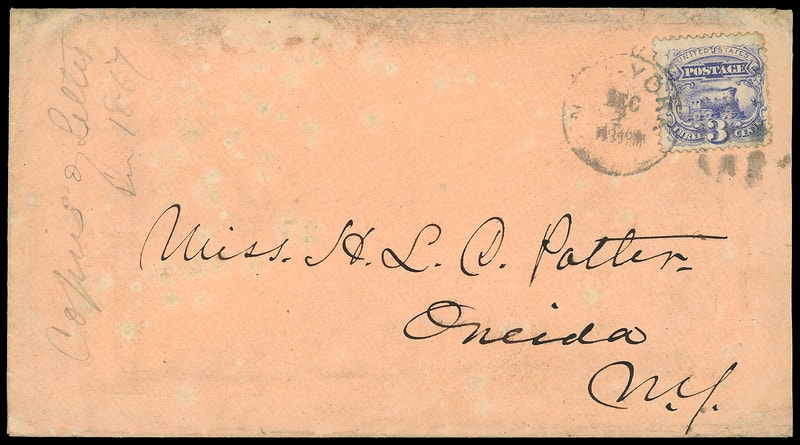 Copies of Letters
In 1867
NEW YORK
DEC
7
UNITED STATES
POSTAGE
THREE CENTS
3
Miss. H. L. C. Potter.
Oneida
N.Y.